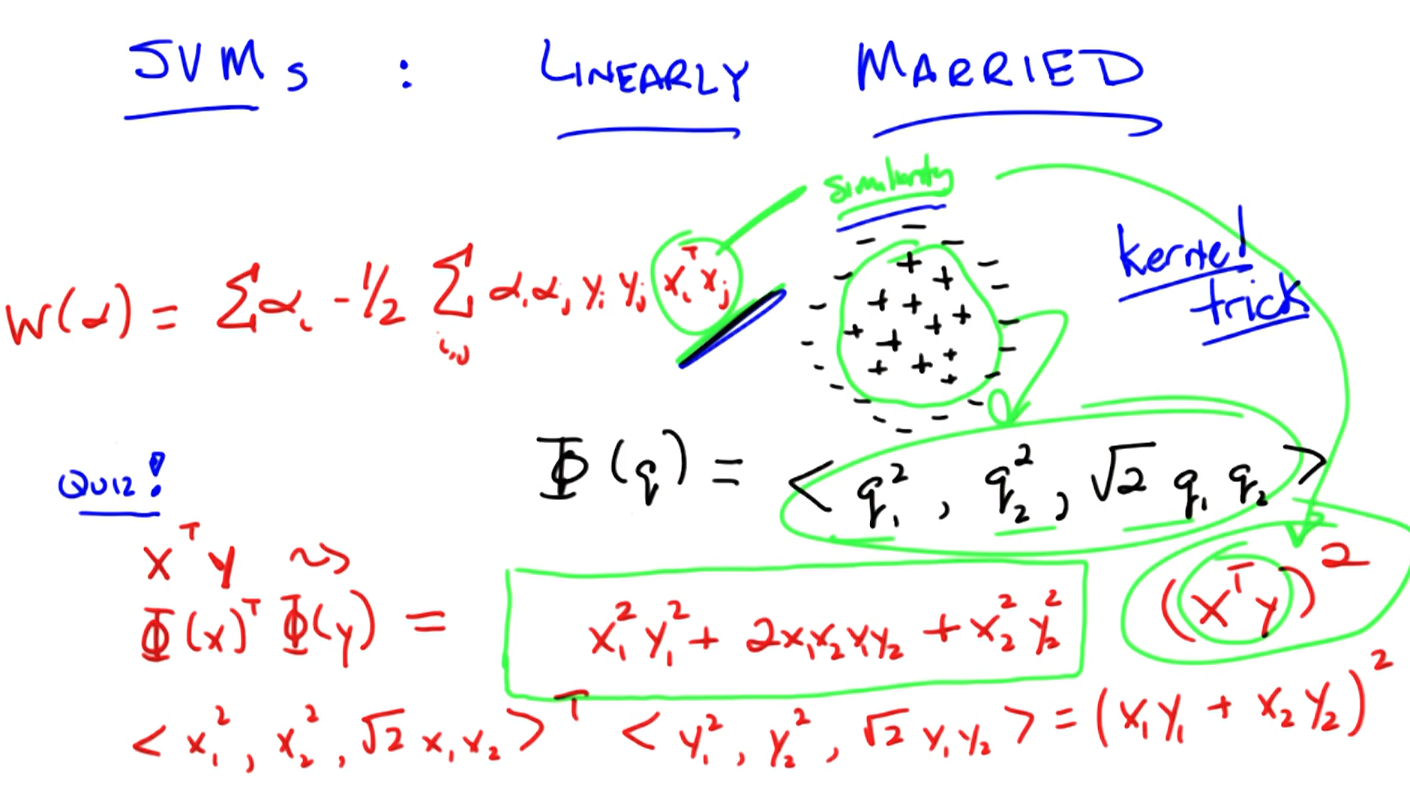 SVMs : LINEARLY MARRIED
similarity
kernel
trick
W(α) = ∑αᵢ - 1/2 ∑ᵢ,ⱼ αᵢαⱼ yᵢ yⱼ xᵢᵀxⱼ
Φ(q) = < q₁², q₂², √2 q₁ q₂ >
QUIZ!
xᵀy ⇝
Φ(x)ᵀ Φ(y) = x₁²y₁² + 2x₁x₂y₁y₂ + x₂²y₂² (xᵀy)²
< x₁², x₂², √2 x₁x₂ >ᵀ < y₁², y₂², √2 y₁y₂ > = (x₁y₁ + x₂y₂)²